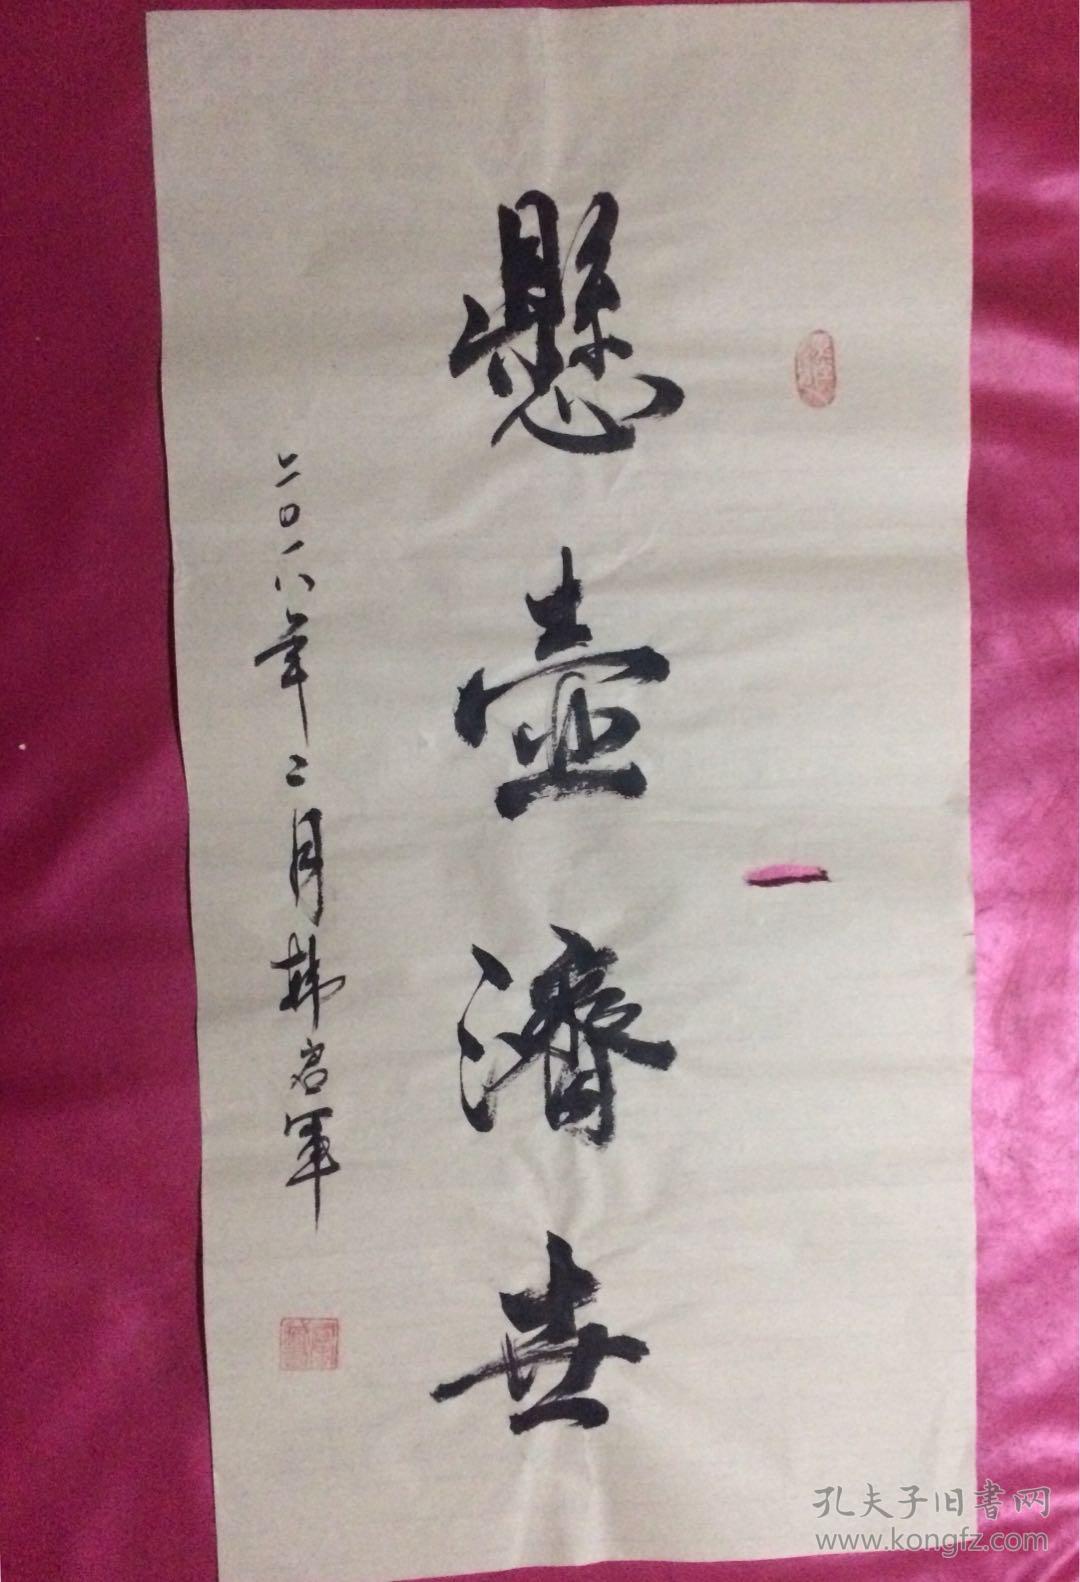 懸壺濟世
二〇一八年二月韩名军
孔夫子旧书网
www.kongfz.com